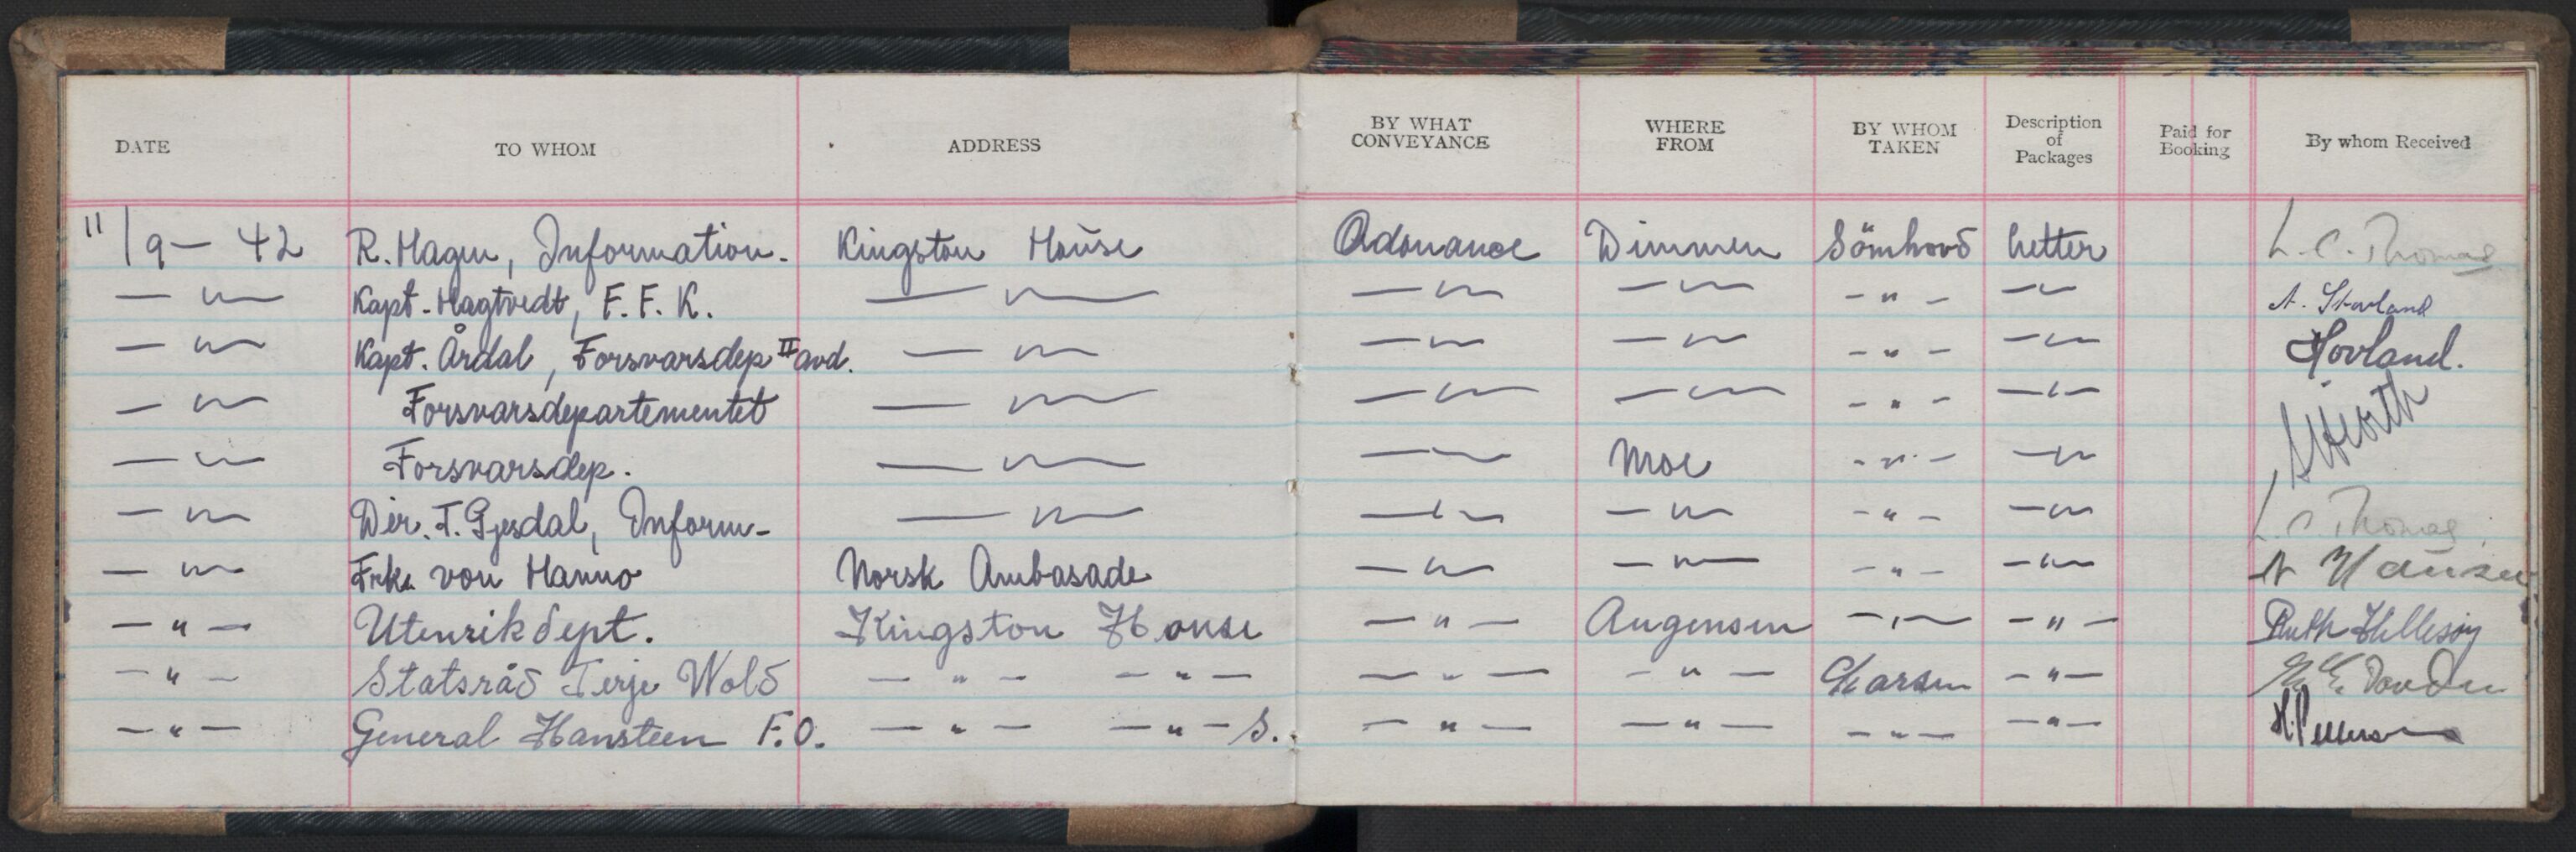 DATE TO WHOM ADDRESS BY WHAT CONVEYANCE WHERE FROM BY WHOM TAKEN Description of Packages Paid for Booking By whom Received
11/9 — 42 R. Hagen, Information. Kingston House Ordonance Dimmen Sömhovd Letter L. C. Thomas
— " — Kapt. Hagtvedt, F. F. K. — " — — " — — " — — " — — " — A. Stavland
— " — Kapt. Årdal, Forsvarsdep II avd. — " — — " — — " — — " — — " — Hovland.
— " — Forsvarsdepartementet — " — — " — — " — — " — — " —
— " — Forsvarsdep. — " — — " — Moe — " — — " —
— " — Dir. T. Gjesdal, Inform- — " — — " — — " — — " — — " — L. C. Thomas
— " — Frk. von Hanno Norsk Ambasade — " — — " — — " — — " — A Hansen
— " — Utenriksdept. Kingston House — " — Augensen — " — — " — Ruth Hellesøy
— " — Statsråd Terje Wold — " — — " — — " — — " — Larsen — " —
— " — General Hansteen F.O. — " — — " — S. — " — — " — — " — — " — H. Pettersen